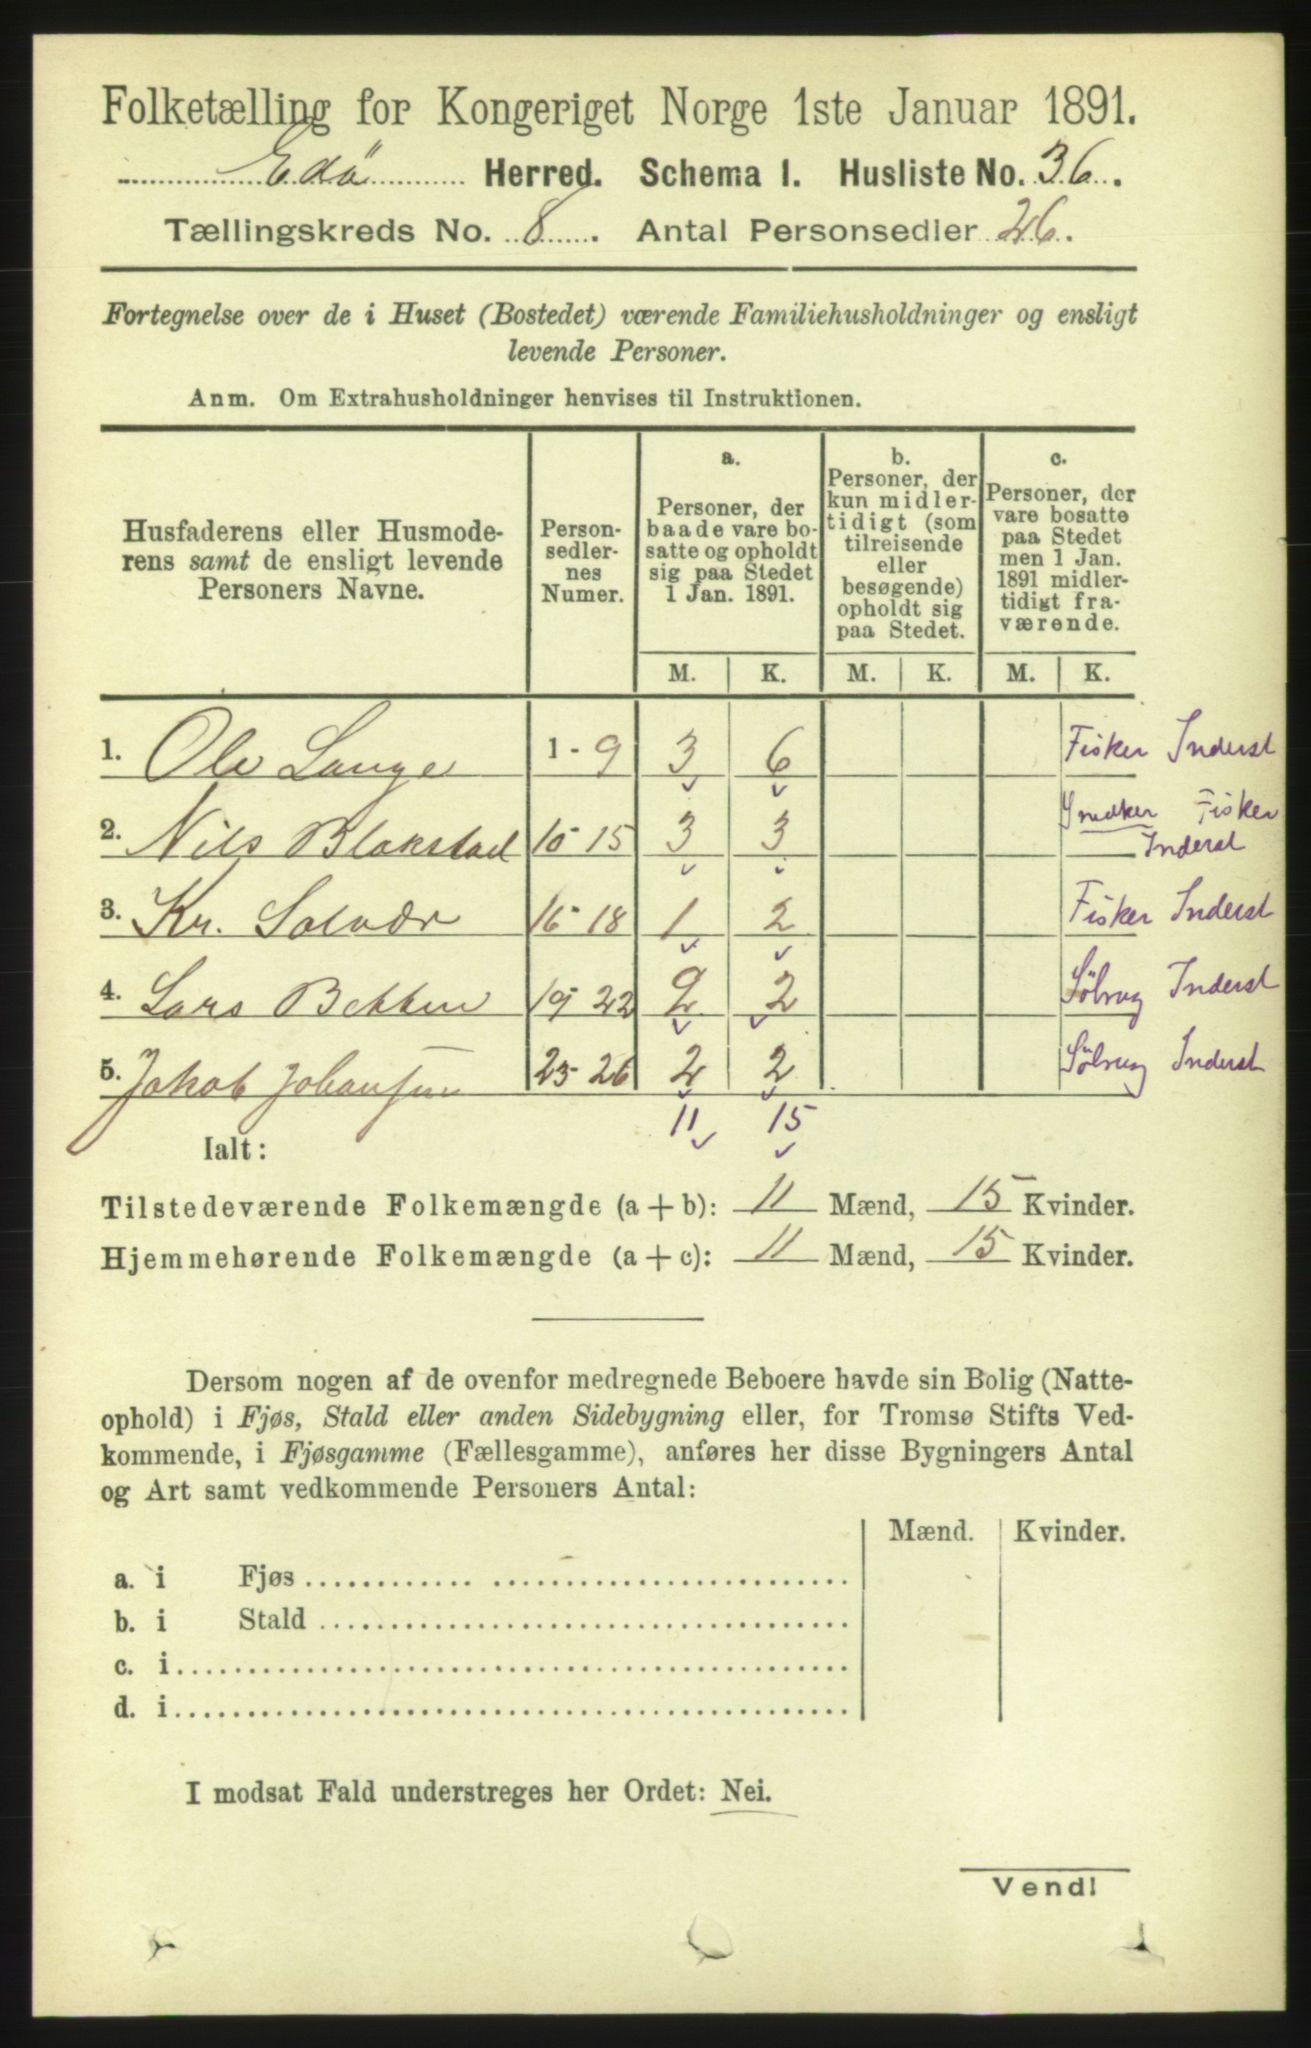 Folketælling for Kongeriget Norge 1ste Januar 1891.
Edö Herred. Schema I. Husliste No. 36.
Tællingskreds No. 8. Antal Personsedler 26.
Fortegnelse over de i Huset (Bostedet) værende Familiehusholdninger og ensligt
levende Personer.
Anm. Om Extrahusholdninger henvises til Instruktionen.
Husfaderens eller Husmode-
rens samt de ensligt levende
Personers Navne.
Person-
sedler-
nes
Numer.
a.
Personer, der
baade vare bo-
satte og opholdt
sig paa Stedet
1 Jan. 1891.
b.
Personer, der
kun midler-
tidigt (som
tilreisende
eller
besøgende)
opholdt sig
paa Stedet.
c.
Personer, der
vare bosatte
paa Stedet
men 1 Jan.
1891 midler-
tidigt fra-
værende.
M. K. M. K. M. K.
1. Ole Lange 1-9 3 6 Fisker Inderst
2. Nils Blakstad 10-15 3 3 Snedker Fisker
Inderst
3. Kr. Solvær 16-18 1 2 Fisker Inderst
4. Lars Bekken 19-22 2 2 Inderst
5. Jakob Johansen 23-26 2 2 Inderst
11 15
Ialt:
Tilstedeværende Folkemængde (a + b): 11 Mænd, 15 Kvinder.
Hjemmehørende Folkemængde (a + c): 11 Mænd, 15 Kvinder.
Dersom nogen af de ovenfor medregnede Beboere havde sin Bolig (Natte-
ophold) i Fjøs, Stald eller anden Sidebygning eller, for Tromsø Stifts Ved-
kommende, i Fjøsgamme (Fællesgamme), anføres her disse Bygningers Antal
og Art samt vedkommende Personers Antal:
Mænd. Kvinder.
a. i Fjøs
b. i Stald
c. i
d. i
I modsat Fald understreges her Ordet: Nei.
Vend!